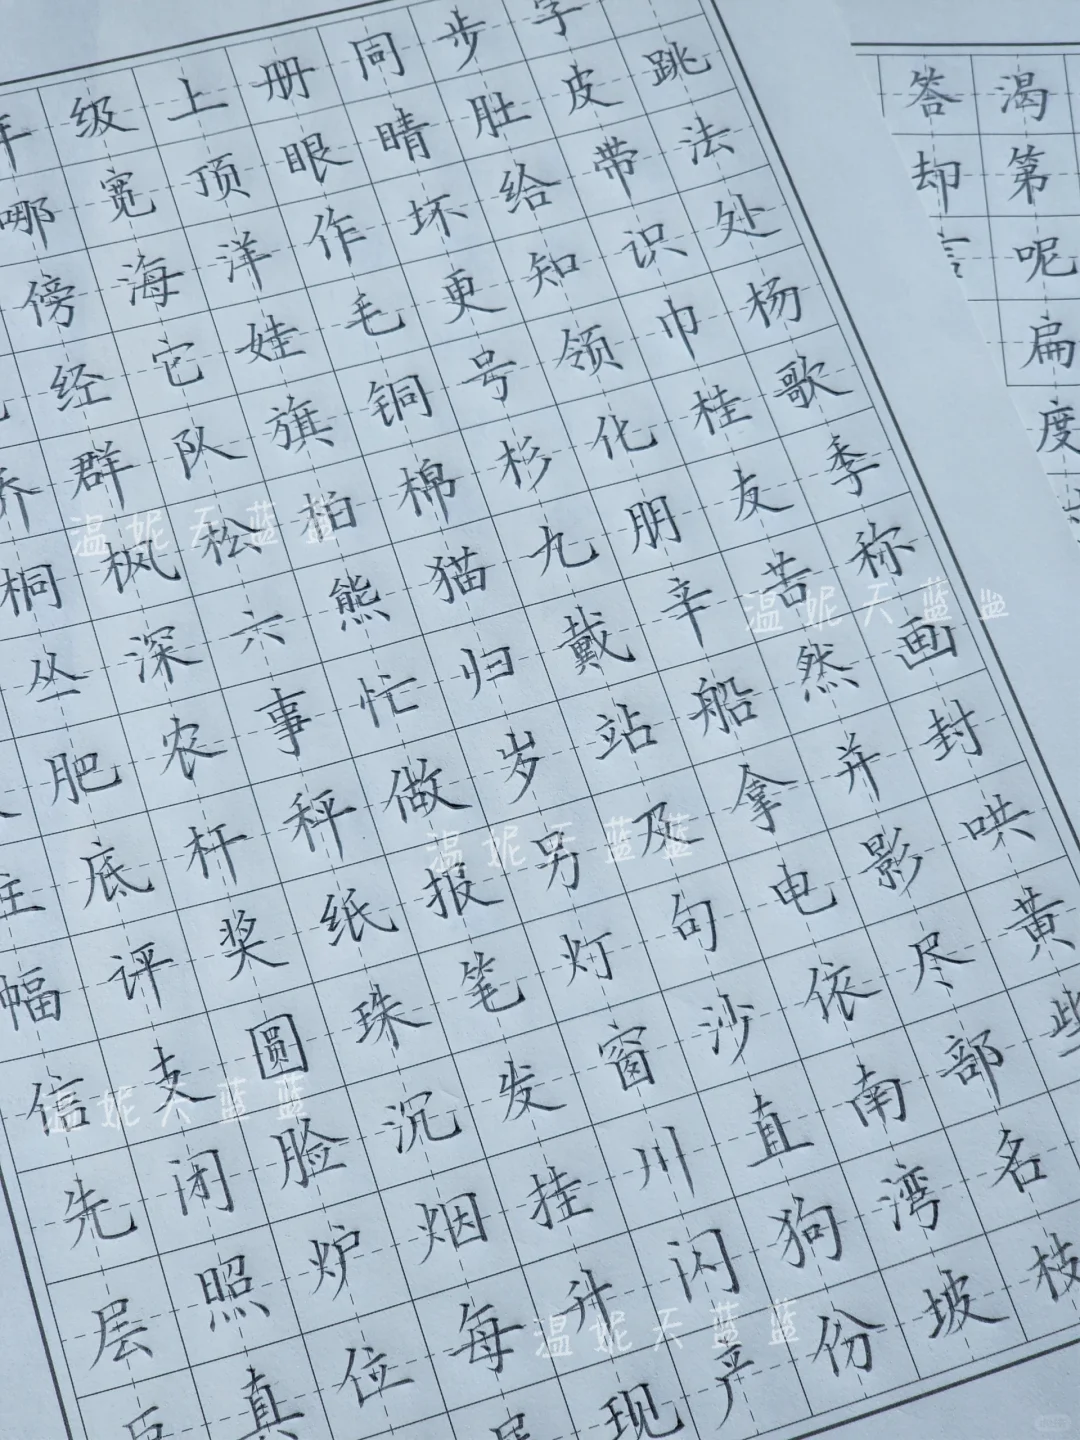 年级上册同步字
哪宽顶眼睛肚皮跳
傍海洋作坏给带法
经它娃毛更知识处
群队旗铜号领巾杨
桐枫松柏棉杉化桂歌
丛深六熊猫九朋友季
肥农事忙归戴辛苦称
底杆秤做岁站船然画
幅评奖纸报另及拿并封
信支圆珠笔灯句电影哄
先闭脸沉发窗沙依尽黄
层照炉烟挂川直南部些
真位每升闪狗湾名
现产份坡枝
答渴
却第
呢
扁
度
温妮天蓝蓝
温妮天蓝蓝
温妮天蓝蓝
温妮天蓝蓝
温妮天蓝蓝